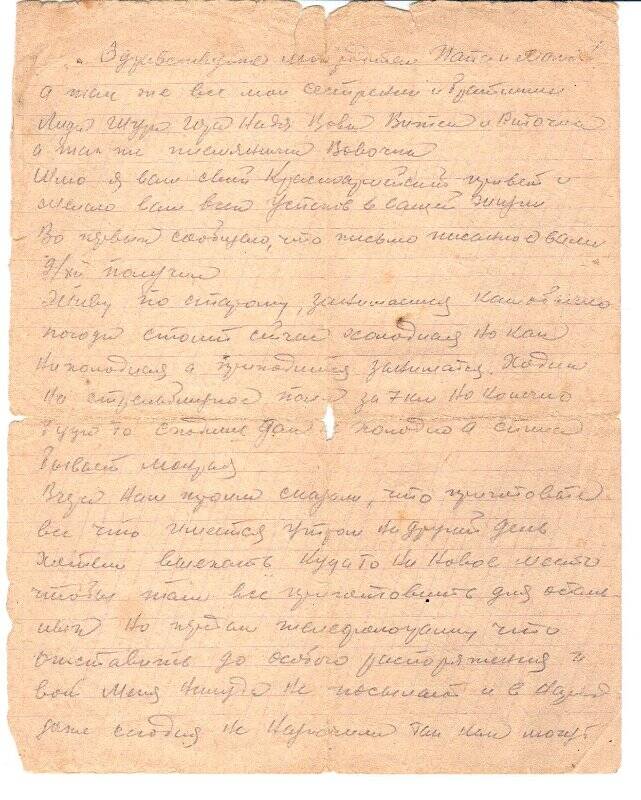 Здравствуйте мои родители Папа и Мама
а так же все мои сестренки и братишки
Лида Шура Надя Вова Витя и Риточка
а так же племянничк Вовочка
Шлю я вам свой Красноармейский привет и
желаю вам всем успехов в вашей жизни
Во первых сообщаю, что письмо писанное вами
получил
Живу по старому, занимаемся как обычно
погода стоит сейчас холодная но как
ни холодная а приходится заниматся. Ходим
на стрельбищное поле за 7 км но конечно
холодно а спина
бывает мокрая
Вчера нам сказали, что приготовте
все что имеется утром на другой день
хотели выехать куда то на новое место
чтобы там все приготовить для осталь
ных но что
отставить до особого распоряжения и
вот меня никуда не посылают и в наряд
даже сегодня не назначили так как могут